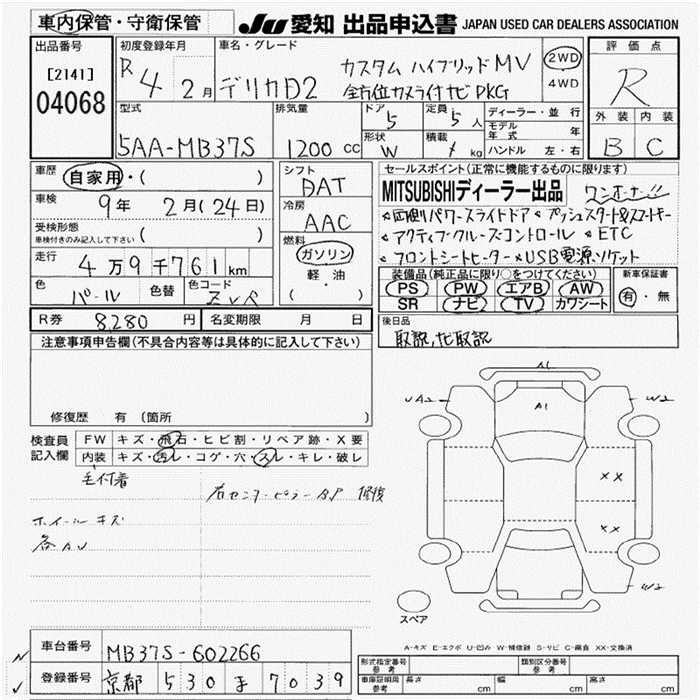 車内保管・守衛保管
JU 愛知 出品申込書 JAPAN USED CAR DEALERS ASSOCIATION
出品番号
[2141]
04068
初度登録年月
R 4 2 月
車名・グレード
デリカD2
カスタム ハイブリッド MV
全方位カメラ付ナビPKG
2WD
4WD
評価点
R
外装 内装
B C
型式
5AA-MB37S
排気量
1200 cc
ドア
5
定員
5 人
形状
W
積載
kg
ディーラー・並行
モデル年式 年
ハンドル 左・右
車歴
自家用・( )
車検
9年 2月(24日)
受検形態
車検付きのみ記入して下さい ( )
走行
4万9千761km
色
パール
色替
色コード
ZVR
シフト
DAT
冷房
AAC
燃料
ガソリン
軽・油
( )
セールスポイント(正常に機能するものに限ります)
MITSUBISHIディーラー出品 ワンオーナー!!
両側パワースライドドア プッシュスタート&スマートキー
アクティブクルーズコントロール ETC
フロントシートヒーター USB電源ソケット
装備品(純正品に限り○をつけてください)
PS PW エアB AW
SR ナビ TV カワシート
新車保証書
有・無
R券 8,280 円
名変期限 月 日
後日品
取説, ナビ取説
注意事項申告欄(不具合内容等は具体的に記入して下さい)
修復歴 有(箇所 )
検査員記入欄
FW キズ・飛石・ヒビ割・リペア跡・X要
内装 キズ・汚レ・コゲ・穴・スレ・キレ・破レ
毛付着
右センターピラー 修復
ホイールキズ
各AU
A1
A1
UA2
W2
XX
XX
W2
スペア
A-キズ E-エクボ U-凹み W-補修跡 S-サビ C-腐食 XX-交換済
車台番号 MB37S-602266
登録番号 京都 530 7039
形式指定番号 参考
類別区分番号 参考
車庫証明用 参考 長さ cm 幅 cm 高さ cm